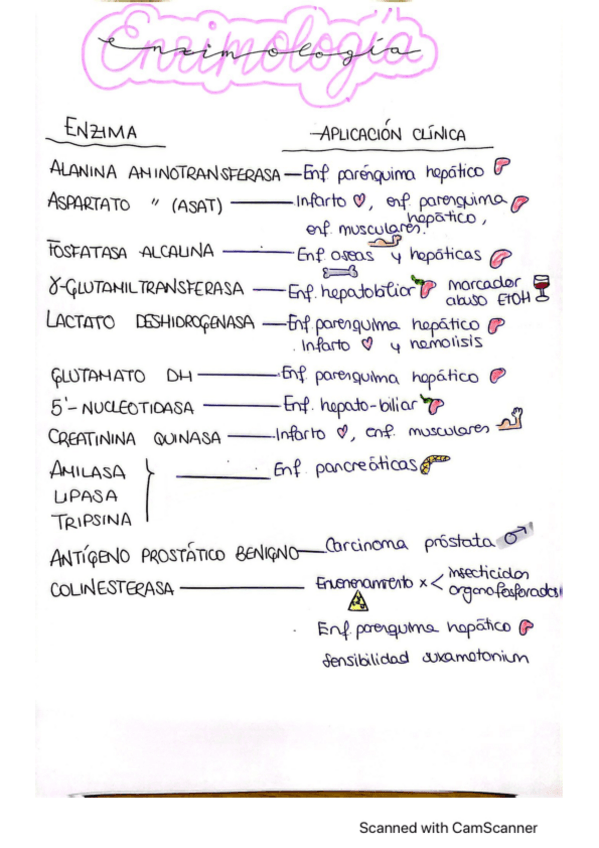 Enzimología
ENZIMA
APLICACIÓN CLÍNICA
ALANINA AMINOTRANSFERASA — Enf parénquima hepático
ASPARTATO " (ASAT) — Infarto, enf. parenquima
hepático,
enf. musculares.
FOSFATASA ALCALINA — Enf. oseas y hepáticas
γ-GLUTAMILTRANSFERASA — Enf. hepatobiliar marcador
abuso EtOH
LACTATO DESHIDROGENASA — Enf. parenquima hepático
. Infarto y hemolisis
GLUTAMATO DH — Enf parenquima hepático
5'-NUCLEOTIDASA — Enf. hepato-biliar
CREATININA QUINASA — Infarto, enf. musculares
AMILASA } — Enf. pancreáticas
LIPASA
TRIPSINA
ANTÍGENO PROSTÁTICO BENIGNO — Carcinoma próstata ♂
COLINESTERASA — Envenenamiento x < insecticidas
organofosforados
Enf. parenquima hepático
sensibilidad suxametonium
Scanned with CamScanner